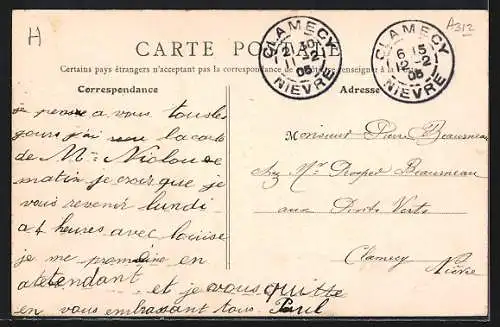 H
A312
CARTE POSTALE
Certains pays étrangers n'acceptant pas la correspondance de se renseigner à la
CLAMECY
NIEVRE
11 -2
05
CLAMECY
6 15
12 -2
05
NIEVRE
Correspondance
Adresse
je pense a vous tous les
jours j'ai la carte
de Me Niclou ce
matin je crois que je
vous revenir lundi
a 4 heures avec louise
je me promène en
atetendant
et je vous quitte
en vous embrassant tous
Monsieur Pierre Beausneau
chez Mr Prosper Beausneau
aux Ponts Verts
Clamecy
Nièvre